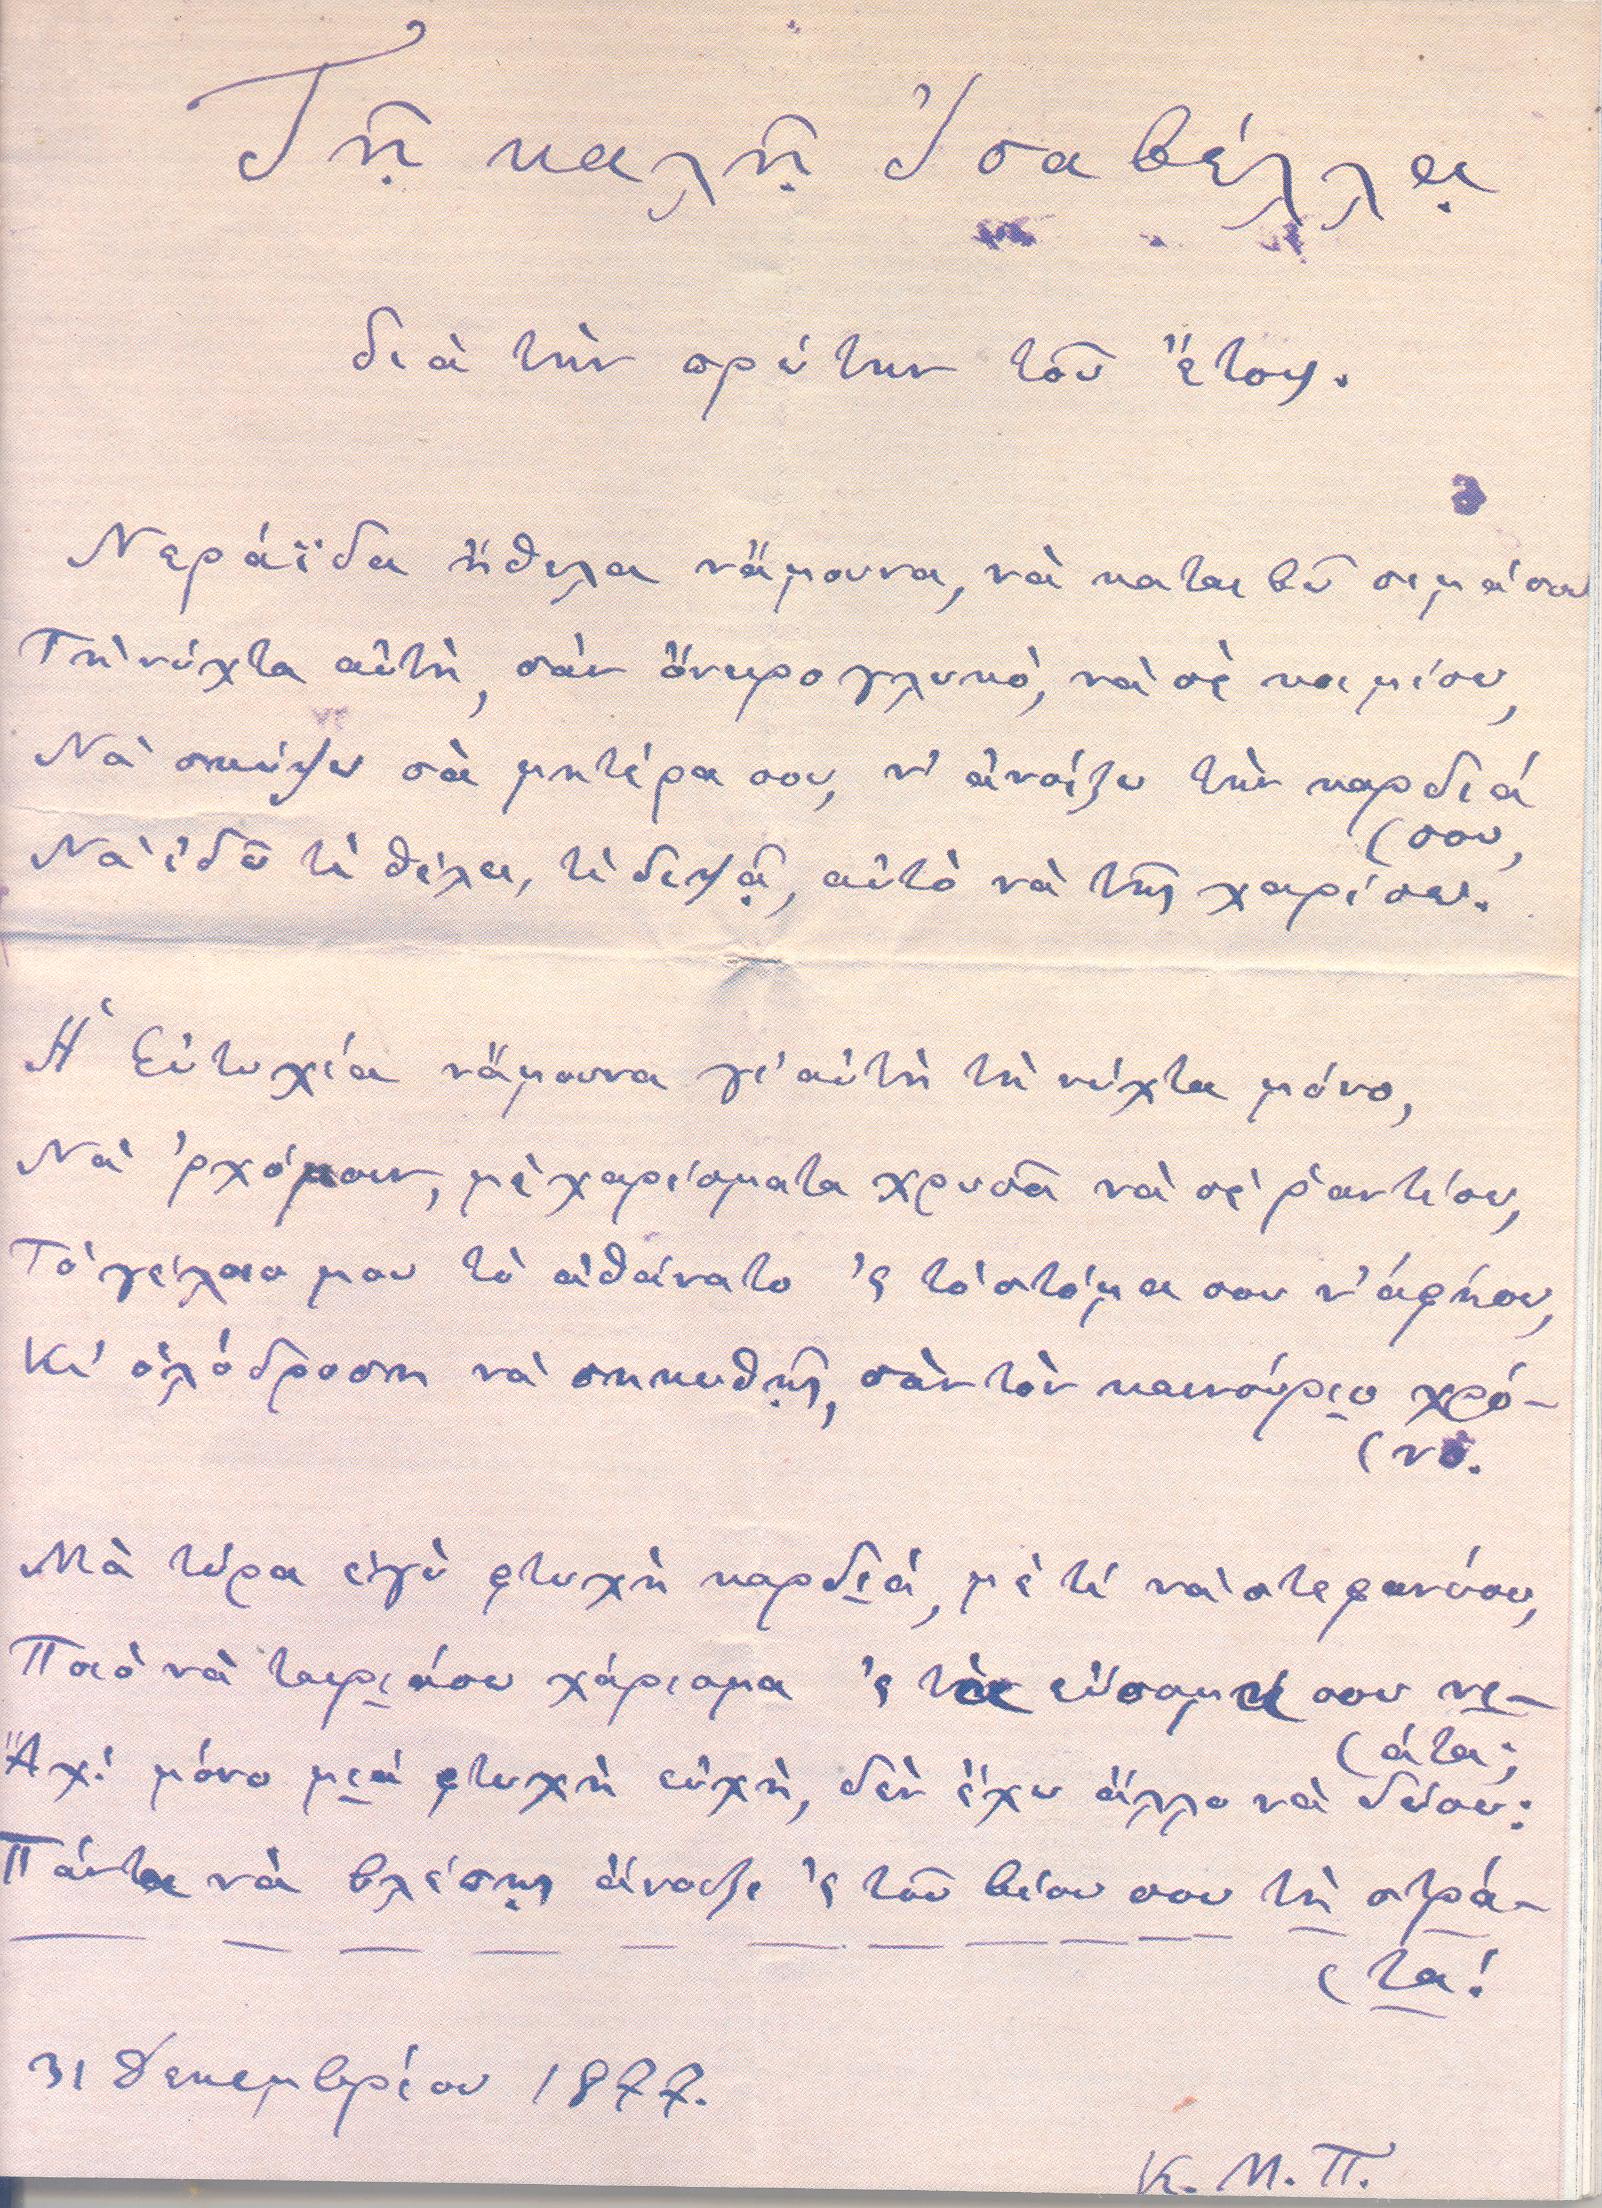 Τῇ καλῇ Ἰσαβέλλᾳ
διὰ τὴν πρώτην τοῦ ἔτους.
Νεράϊδα ἤθελα νἄμουνα, νὰ καταιβῶ σιμά σου
Τὴ νύχτα αὐτὴ, σὰν ὄνειρο γλυκὸ, νὰ σὲ κοιμίσω,
Νὰ σκύψω σὰ μητέρα σου, ν' ἀνοίξω τὴν καρδιά
(σου,
Νὰ ἰδῶ τὶ θέλει, τὶ διψᾷ, αὐτὸ νὰ τῆς χαρίσω.
Ἡ Εὐτυχία νἄμουνα γι' αὐτὴ τὴ νύχτα μόνο,
Νὰ 'ρχόμουν, μὲ χαρίσματα χρυσᾶ νὰ σὲ ῥαντίσω,
Τὸ γέλοιο μου τὸ ἀθάνατο 'ς τὸ στόμα σου ν' ἀφήσω,
Κι' ὁλόδροση νὰ σηκωθῇς, σὰν τὸν καινούριο χρό-
(νο.
Μὰ τώρα ἐγὼ φτωχὴ καρδιά, μὲ τί νὰ στεφανώσω,
Ποιὸ νὰ ταιριάσω χάρισμα 'ς τὰ εὔοσμά σου νι-
(άτα;
Ἄχ! μόνο μιά φτωχὴ εὐχὴ, δὲν ἔχω ἄλλο νὰ δώσω:
Πάντα νὰ βλέπῃς ἄνοιξι 'ς τοῦ βίου σου τὴ στρά-
(τα!
31 Δεκεμβρίου 1877.
Κ. Μ. Π.